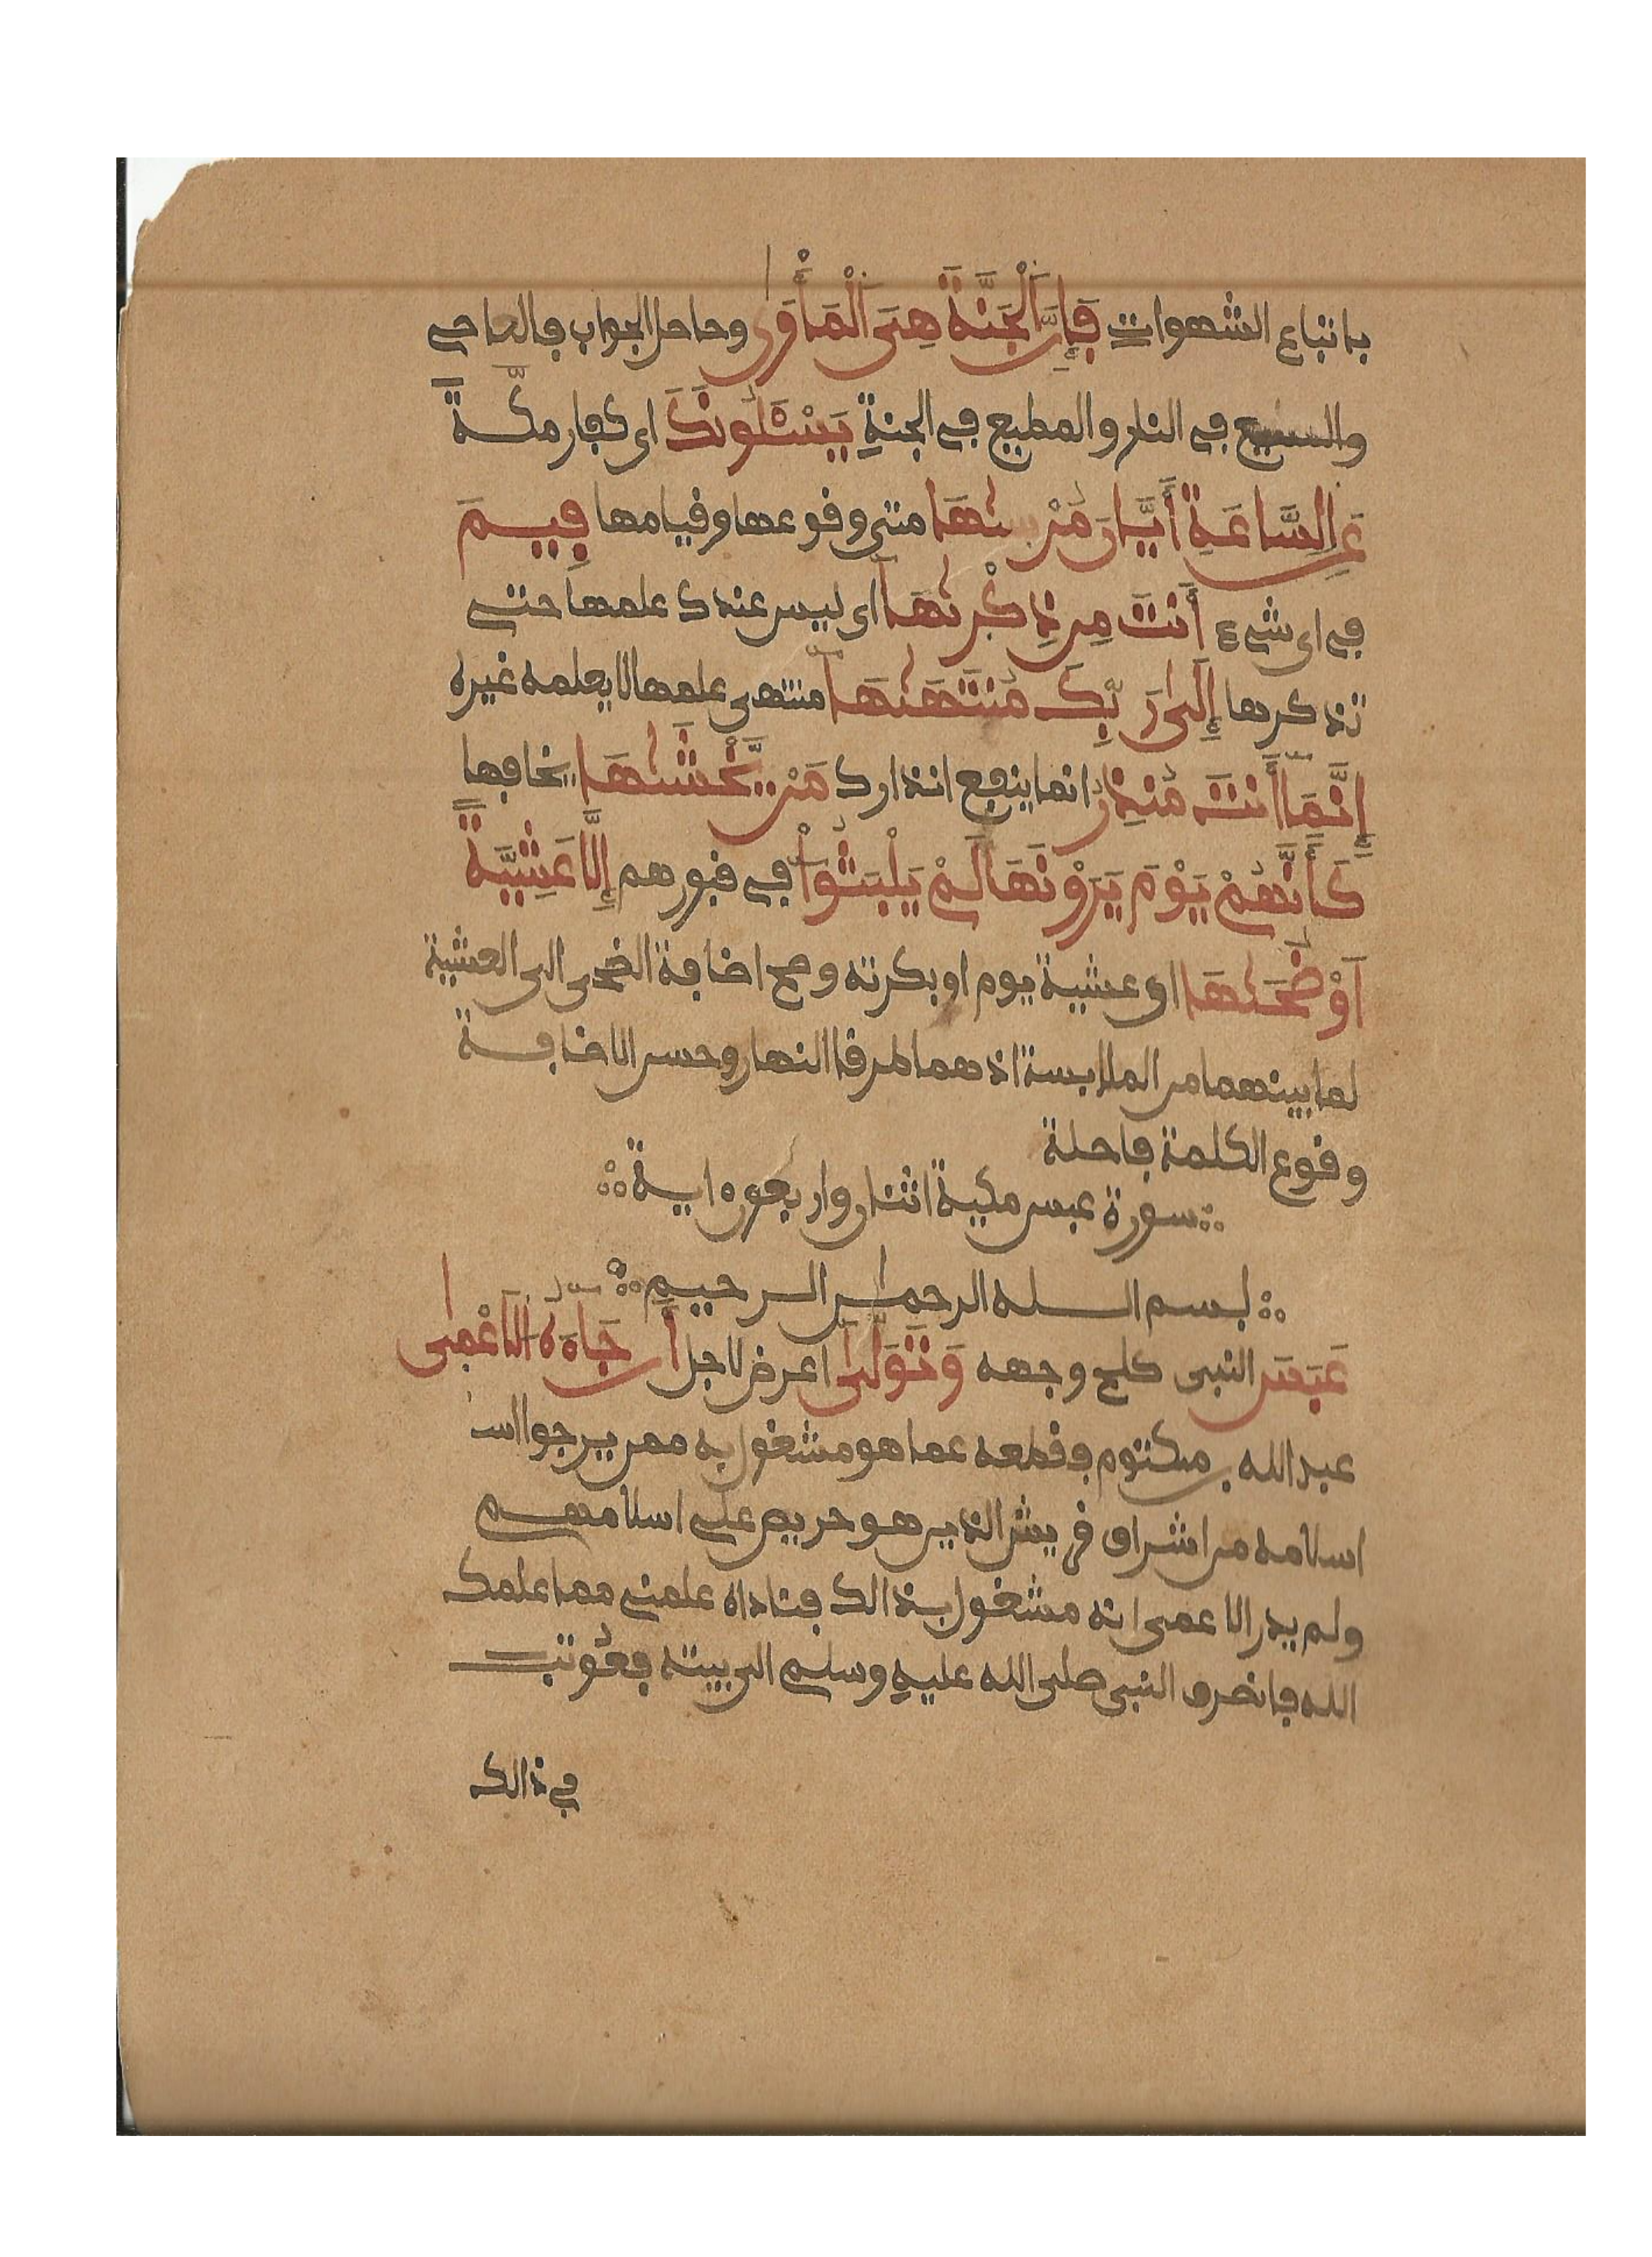 باتباع الشهوات فَإِنَّ اَلْجَنَّةَ هِىَ اَلْمَأْوَىٰ وحاصل الجواب فالعاصے
والسسيع فے النار والمطيع فے الجنةِ يَسْـَٔلُونَكَ اى كفار مكـــةَ
عَنِ اِلسَّاعَةِ أَيَّانَ مُرْسَىٰهَا متى وقوعها وقيامها فِيـــمَ
فے اى شےء أَنتَ مِن ذِكْرَىٰهَا اى ليس عندك علمها حتے
تذكرها إِلَىٰ رَبِّكَ مُنتَهَىٰهَا منتهى علمها لا يعلمه غيره
إِنَّمَا أَنتَ مُنذِرُ انما ينفع انذارك مَنْ يَّخْشَىٰهَا يخافها
كَأَنَّهُمْ يَوْمَ يَرَوْنَهَا لَمْ يَلْبَثُوٓاْ فے قبورهم إِلَّا عَشِيَّةً
اَوْ ضُحَىٰهَا اى عشية يوم او بكرته وصح اضافة الضحى الى العشية
لما بينهما من الملابسة اذ هما طرفا النهار وحسن الاضافـــة
وقوع الكلمة فاصلة
سورة عبس مكية اثنتان واربعون ايـــة
بســـم اللـــه الرحمٰن الـــرحيـــم
عَبَسَ النبى كلح وجهه وَتَوَلَّىٰ اعرض لاجل أَن جَآءَهُ اُلَاعْمىٰ
عبد الله بن مكتوم فقطعه عما هو مشغول به ممن يرجوا
اسلامه من اشراف قريش الذين هو حريص علے اسلامهـــم
ولم يدر الاعمى انه مشغول بذالك فناداه علمنے مما علمك
الله فانصرف النبى صلى الله عليهِ وسلم الى بيته فعُوتب
فے ذالك